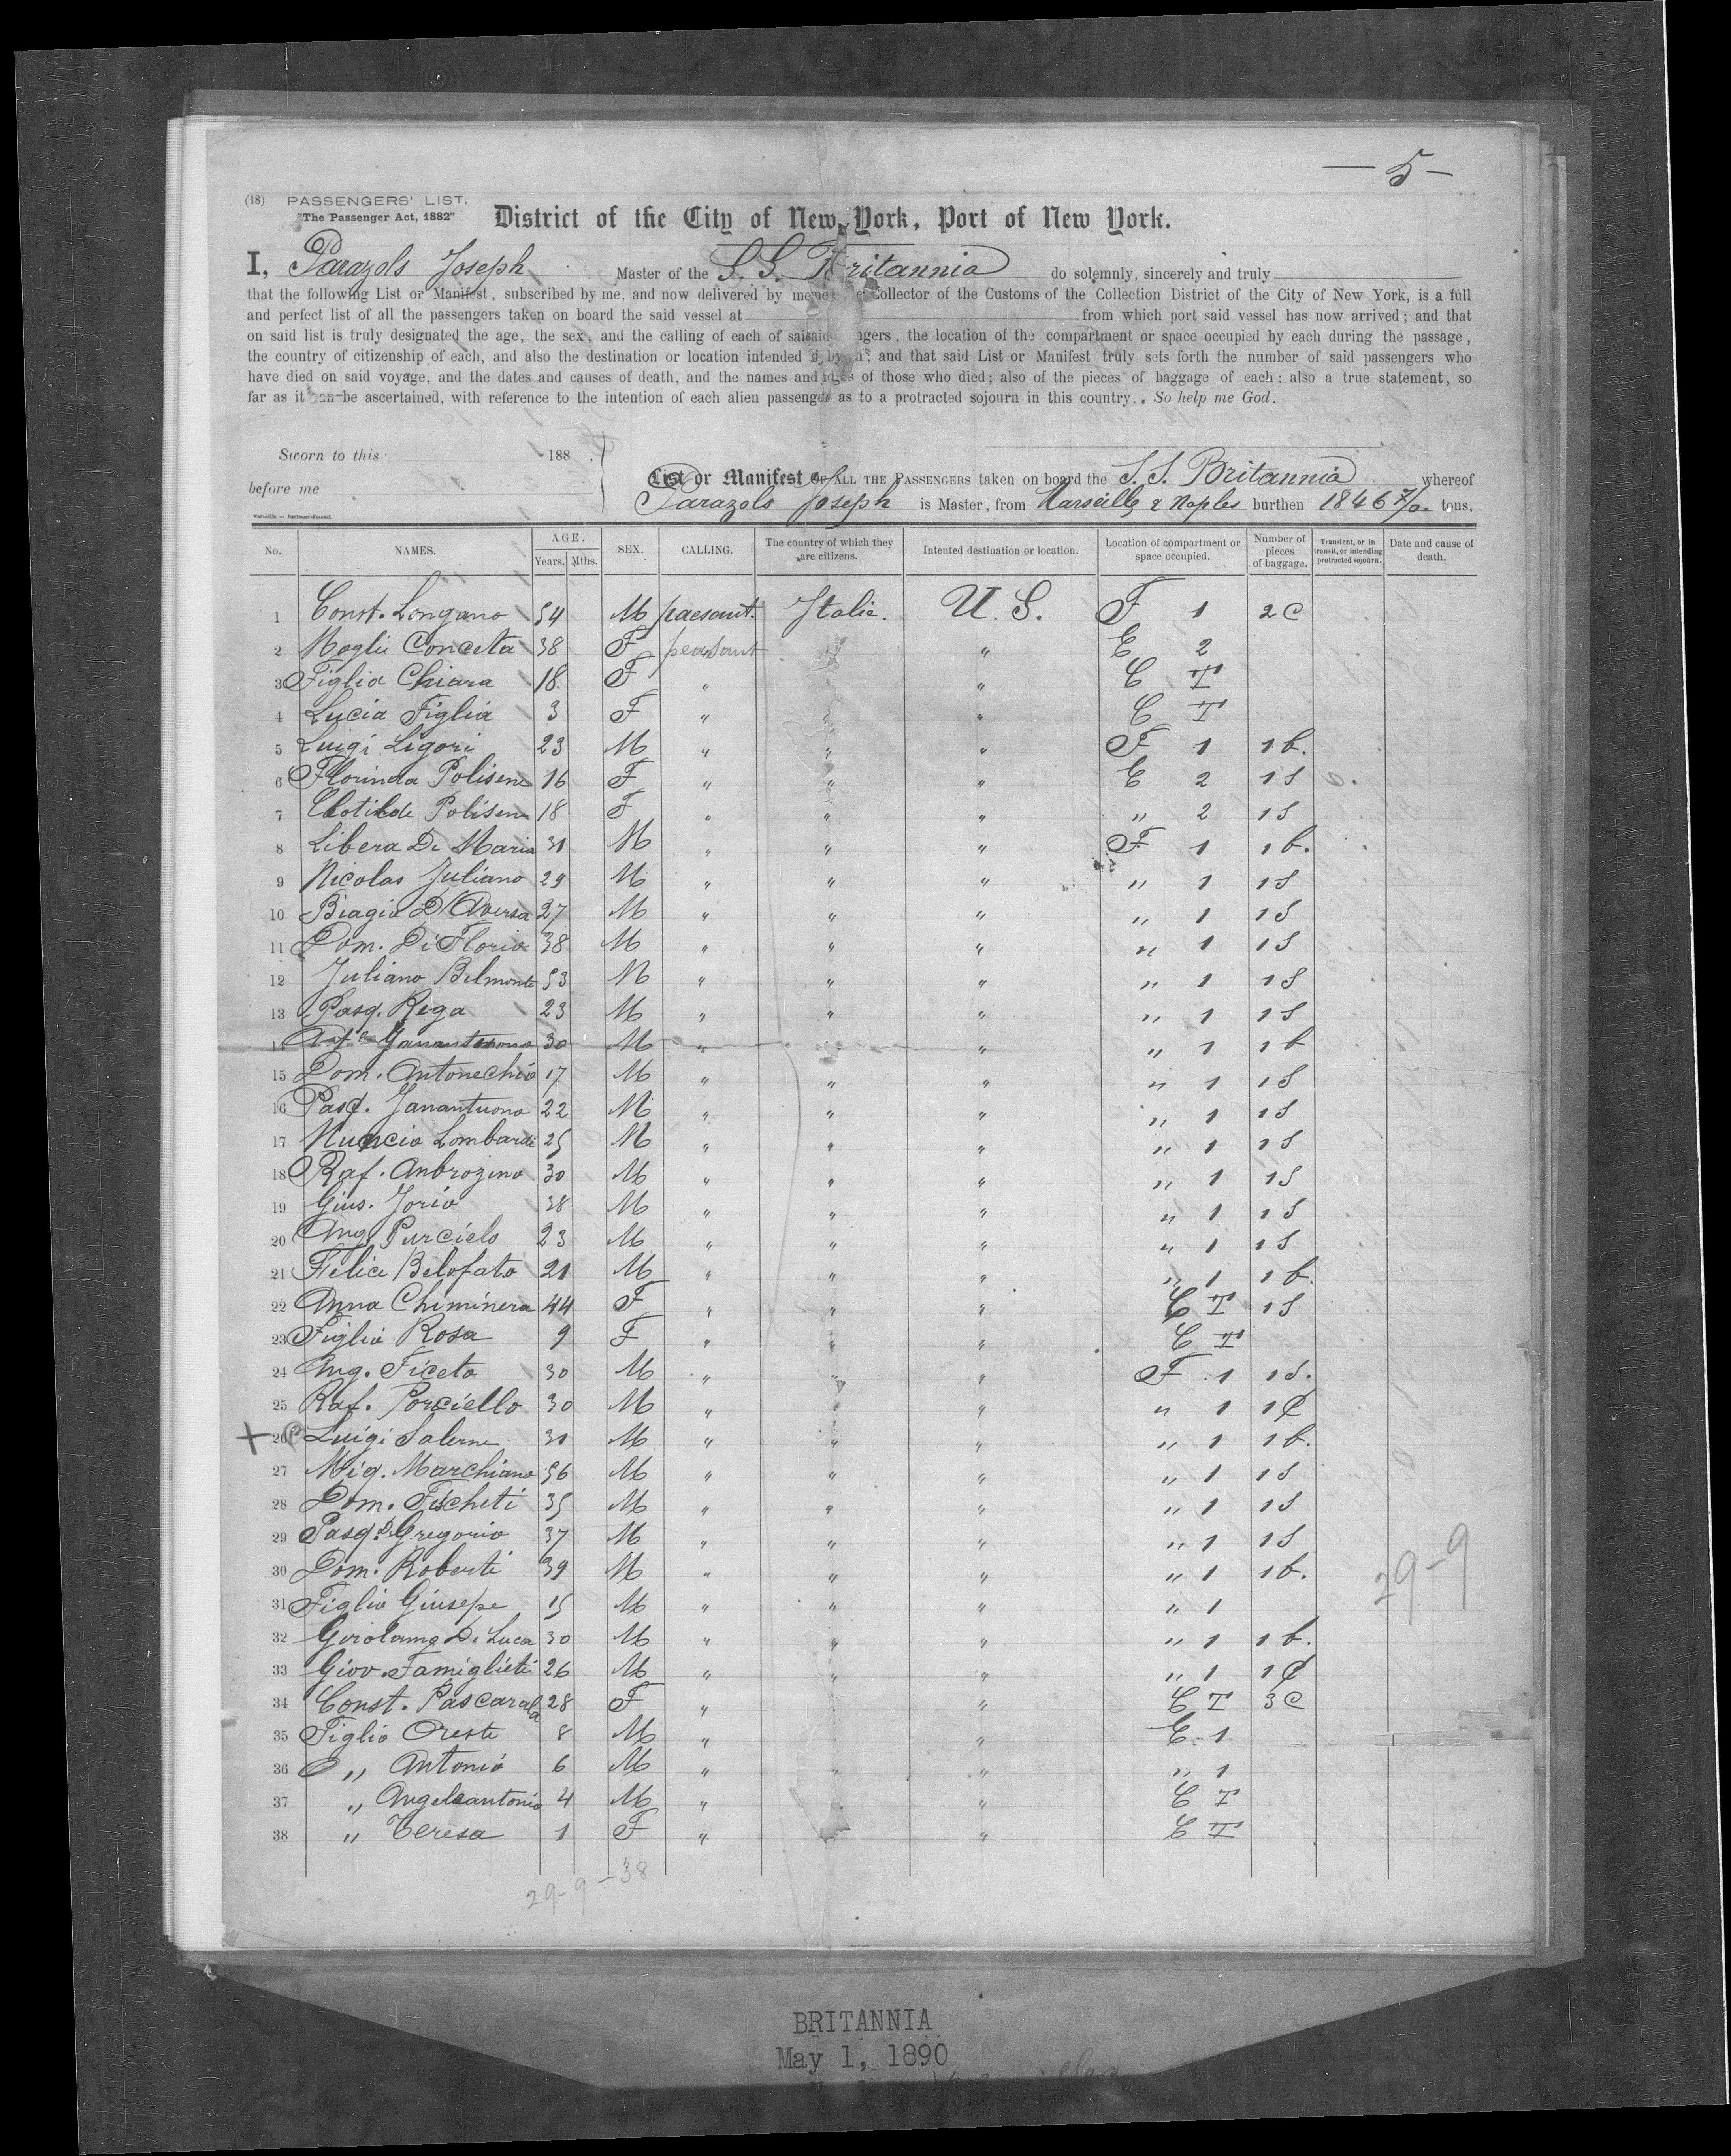 — 5 —
(18) PASSENGERS' LIST.
"The Passenger Act, 1882"
District of the City of New York, Port of New York.
I, Parazols Joseph Master of the S. S. Britannia do solemnly, sincerely and truly
that the following List or Manifest, subscribed by me, and now delivered by me Collector of the Customs of the Collection District of the City of New York, is a full
and perfect list of all the passengers taken on board the said vessel at from which port said vessel has now arrived; and that
on said list is truly designated the age, the sex, and the calling of each of ngers, the location of the compartment or space occupied by each during the passage,
the country of citizenship of each, and also the destination or location intended by; and that said List or Manifest truly sets forth the number of said passengers who
have died on said voyage, and the dates and causes of death, and the names and of those who died; also of the pieces of baggage of each: also a true statement, so
far as it can be ascertained, with reference to the intention of each alien passenger as to a protracted sojourn in this country. So help me God.
Sworn to this 188
before me
List or Manifest OF ALL THE PASSENGERS taken on board the S. S. Britannia whereof
Parazols Joseph is Master, from Marseille & Naples burthen 1846 tons.
No. NAMES. AGE. Years. Mths. SEX. CALLING. The country of which they are citizens. Intented destination or location. Location of compartment or space occupied. Number of pieces of baggage. Transient, or in transit, or intending protracted sojourn. Date and cause of death.
1 Const. Longano 54 M paesant. Italie. U. S. F 1 2 C
2 Moglie Conceta 38 F peasant " E 2
3 Figlia Chiara 18 F " " C T
4 Lucia Figlia 3 F " " " C T
5 Luigi Ligori 23 M " " " F 1 1 b.
6 Florinda Polisene 16 F " " " E 2 1 S
7 Clotilde Polisene 18 F " " " " 2 1 S
8 Libera Di Maria 31 M " " " F 1 1 b.
9 Nicolas Juliano 29 M " " " " 1 1 S
10 Biagio D'Aversa 27 M " " " " 1 1 S
11 Dom. Di Florio 38 M " " " " 1 1 S
12 Juliano Belmonte 53 M " " " " 1 1 S
13 Pasq. Rega 23 M " " " " 1 1 S
14 30 M " " " 1 1 b
15 Dom. Antonechio 17 M " " " " 1 1 S
16 Pasq. Janantuono 22 M " " " " 1 1 S
17 Nuncio Lombardi 25 M " " " " 1 1 S
18 Raf. Anbrozino 30 M " " " " 1 1 S
19 Gius. Jorio 38 M " " " " 1 1 S
20 Ang. Purcielo 23 M " " " " 1 1 S
21 Felice Belofato 21 M " " " " 1 1 b.
22 Anna Chiminera 44 F " " " C T 1 S
23 Figlia Rosa 9 F " " " C T
24 Ang. Ficeto 30 M " " " F 1 1 S.
25 Raf. Porciello 30 M " " " " 1 1 C
+ 26 Luigi Salerne 31 M " " " " 1 1 b.
27 Mig. Marchiano 56 M " " " " 1 1 S
28 Dom. Fischeti 35 M " " " " 1 1 S
29 Pasq. Di Gregorio 37 M " " " " 1 1 S
30 Dom. Roberti 39 M " " " " 1 1 b.
31 Figlio Giusepe 15 M " " " " 1
32 Girolamo Di Luca 30 M " " " " 1 1 b.
33 Giov. Famiglieti 26 M " " " " 1 1 C
34 Const. Pascarala 28 F " " C T 3 C
35 Figlio Oreste 8 M " " E 1
36 " Antonio 6 M " " " " 1
37 " Angeleantonio 4 M " " C T
38 " Teresa 1 F " " C T
29-9
29-9-38
BRITANNIA
May 1, 1890